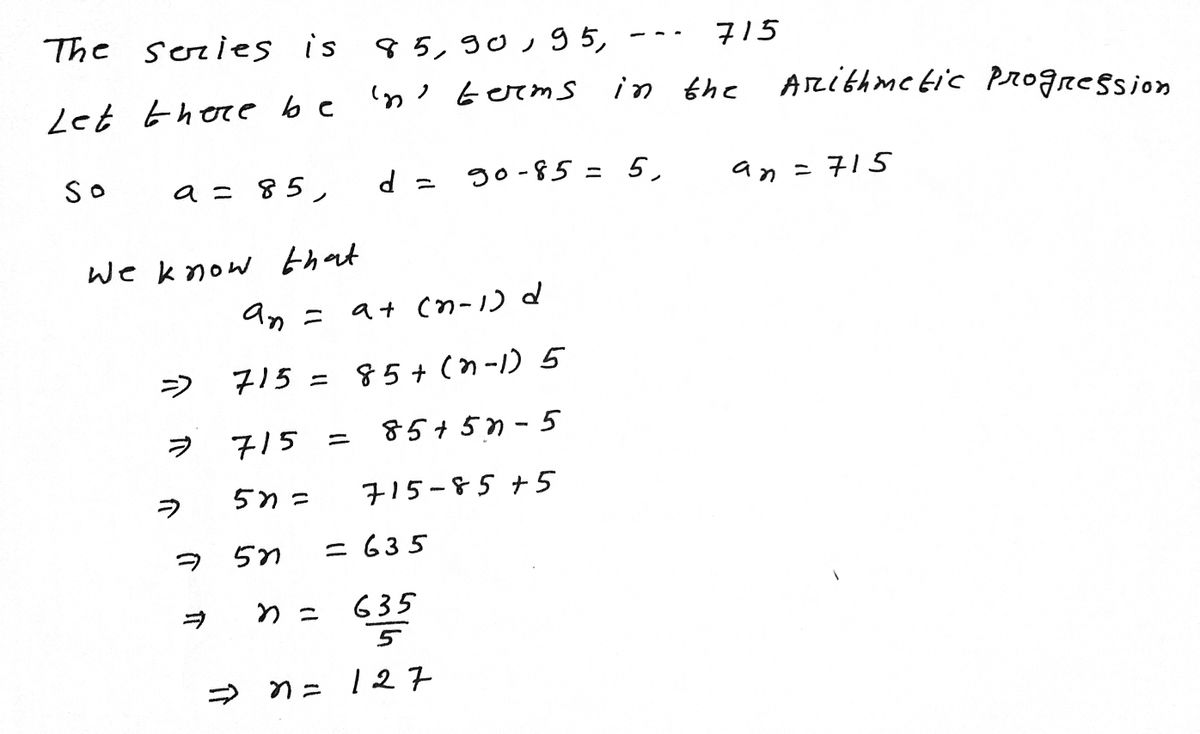 The series is 85, 90, 95, --- 715
Let there be 'n' terms in the Arithmetic Progression
So a = 85, d = 90-85 = 5, aₙ = 715
We know that
aₙ = a + (n-1) d
⇒ 715 = 85 + (n-1) 5
⇒ 715 = 85 + 5n - 5
⇒ 5n = 715 - 85 + 5
⇒ 5n = 635
⇒ n = 635/5
⇒ n = 127